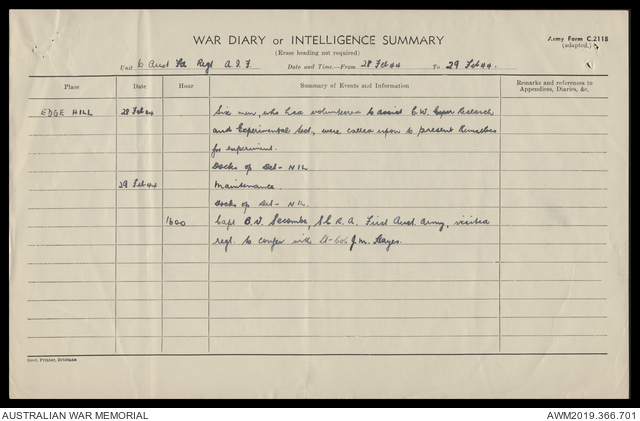 WAR DIARY or INTELLIGENCE SUMMARY
Army Form C.2118
(Erase heading not required)
(adapted.)
Unit 6 Aust Fd Regt A.I.F Date and Time.—From 28 Feb 44 To 29 Feb 44.
Place Date Hour Summary of Events and Information Remarks and references to Appendices, Diaries, &c.
EDGE HILL 28 Feb 44 Six men, who had volunteered to assist C.W. Research
and Experimental Sect, were called upon to present themselves
for experiment.
Docks op Det- NIL
29 Feb 44 Maintenance.
Docks op Det- NIL.
1600 Capt B.V. Secombe, S.C.R.A. First Aust. Army, visited
regt. to confer with Lt-Col J.M. Hayes.
Govt. Printer, Brisbane
AUSTRALIAN WAR MEMORIAL
AWM2019.366.701